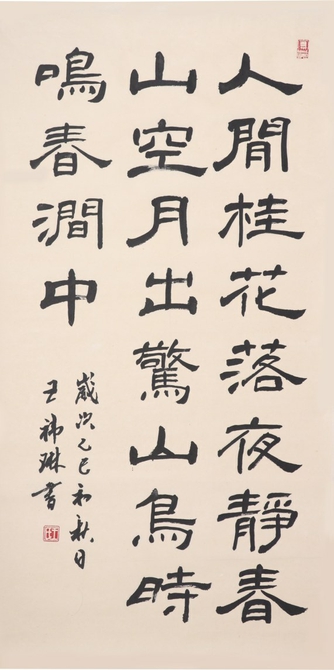 人閒桂花落夜靜春
山空月出驚山鳥時
鳴春澗中
歲次乙巳初秋日
王琳書